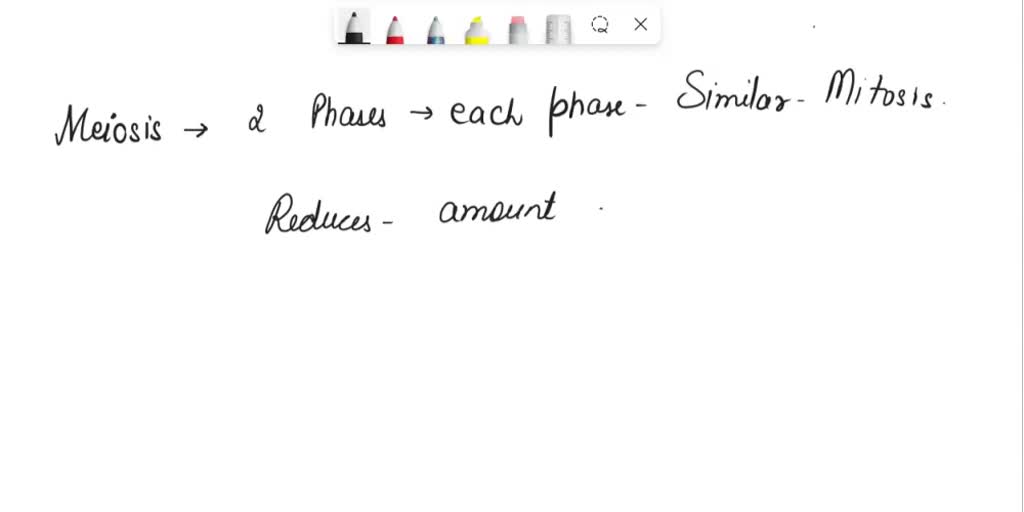 Meiosis → 2 Phases → each phase - Similar - Mitosis.
Reduces - amount